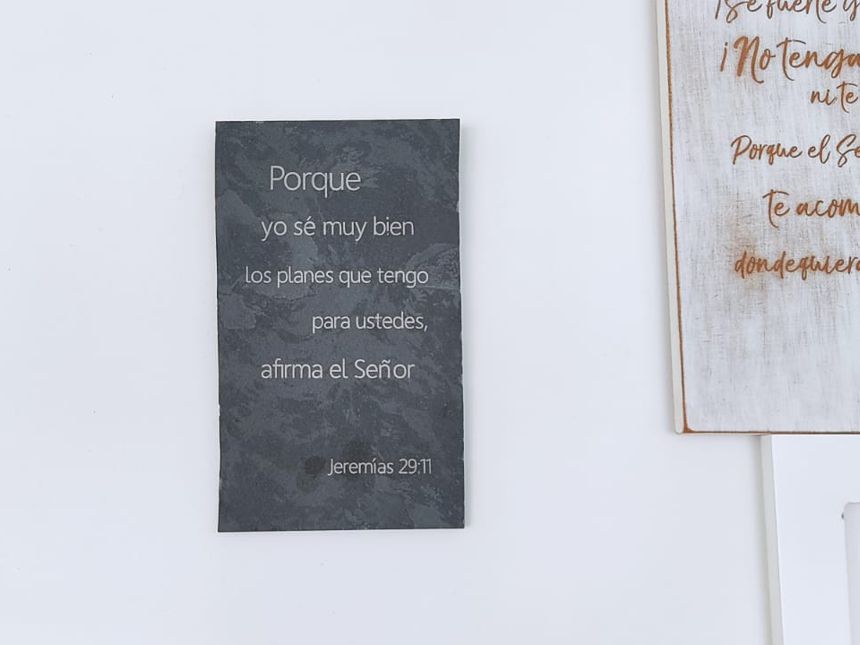 Porque
yo sé muy bien
los planes que tengo
para ustedes,
afirma el Señor
Jeremías 29:11
¡Sé fuerte y
¡No tenga
ni te
Porque el Se
te acom
dondequiera